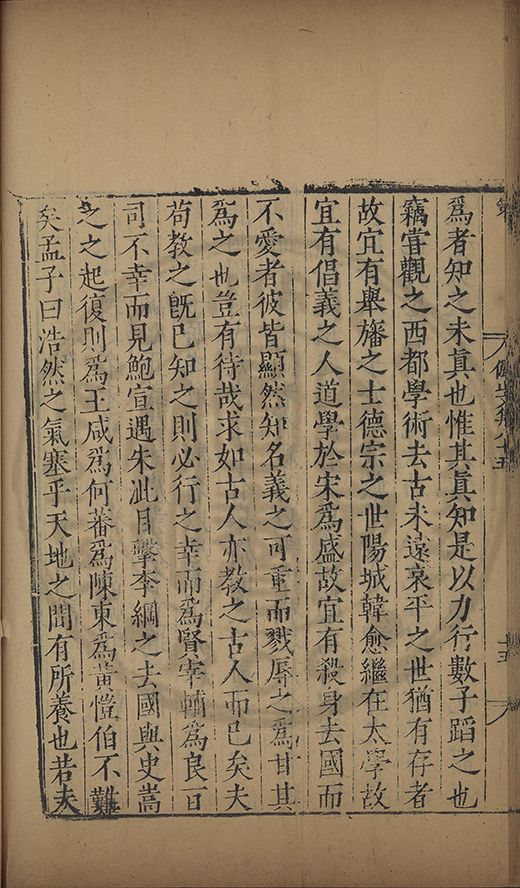 爲者知之未真也惟其真知是以力行數子蹈之也
竊嘗觀之西都學術去古未遠哀平之世猶有存者
故宜有舉旛之士德宗之世陽城韓愈繼在太學故
宜有倡義之人道學於宋爲盛故宜有殺身去國而
不愛者彼皆顯然知名義之可重而戮辱之爲甘其
爲之也豈有待哉求如古人亦教之古人而已矣夫
苟教之旣已知之則必行之幸而爲賢宰輔爲良百
司不幸而見鮑宣遇朱泚目擊李綱之去國與史嵩
之之起復則爲王咸爲何蕃爲陳東爲黃愷伯不難
矣孟子曰浩然之氣塞乎天地之間有所養也若夫